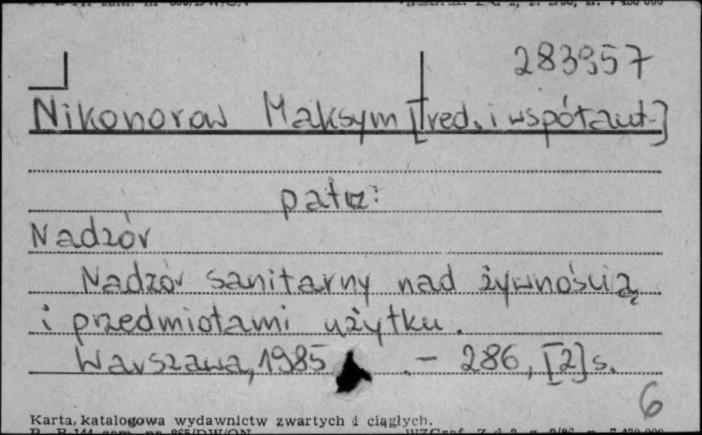 283957
Nikonorow Maksym [red. i współaut.]
patrz:
Nadzór
Nadzór sanitarny nad żywnością
i przedmiotami użytku.
Warszawa, 1985 . – 286, [2] s.
6
Karta, katalogowa wydawnictw zwartych i ciągłych.